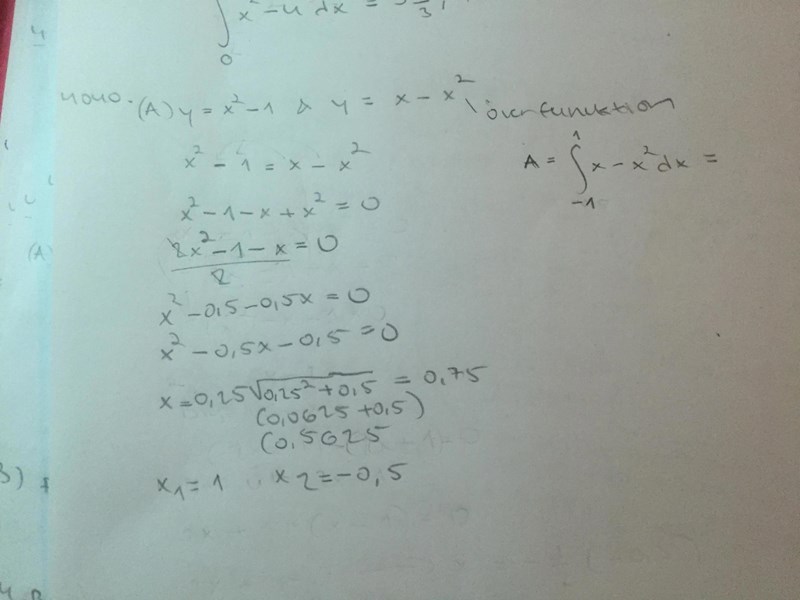 ∫₀ x² - 4 dx =
4040. (A) y = x² - 1 & y = x - x² \ överfunktion
x² - 1 = x - x²
A = ∫₋₁¹ x - x² dx =
x² - 1 - x + x² = 0
2x² - 1 - x = 0
2
x² - 0,5 - 0,5x = 0
x² - 0,5x - 0,5 = 0
x = 0,25 √0,25² + 0,5 = 0,75
(0,0625 + 0,5)
(0,5625
x₁ = 1 x2 = -0,5